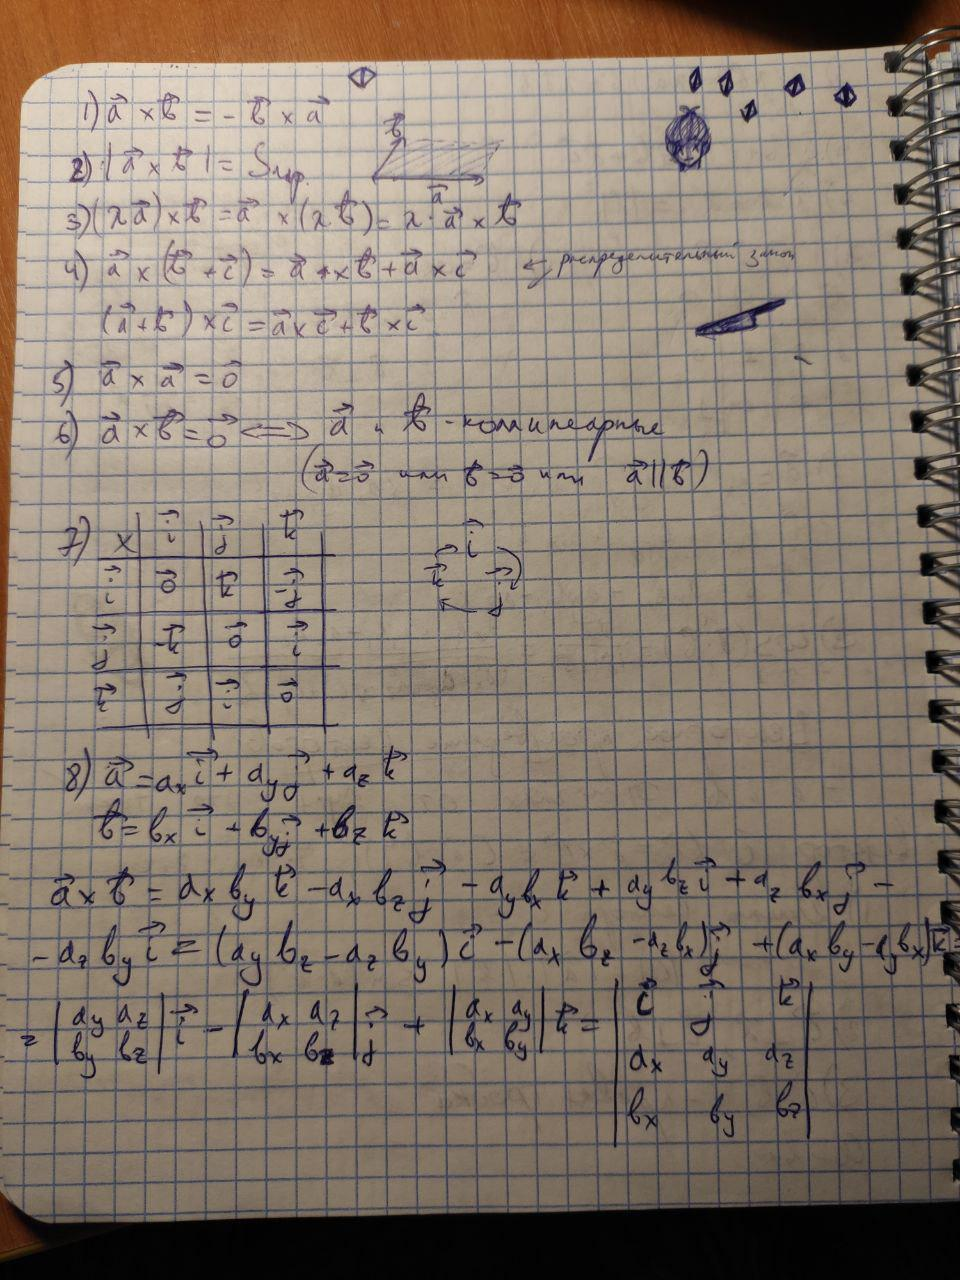 1) a⃗ × b⃗ = - b⃗ × a⃗
2) |a⃗ × b⃗| = Sпар.
b⃗
a⃗
3) (λa⃗) × b⃗ = a⃗ × (λb⃗) = λ · a⃗ × b⃗
4) a⃗ × (b⃗ + c⃗) = a⃗ × b⃗ + a⃗ × c⃗ ← распределительный закон
(a⃗ + b⃗) × c⃗ = a⃗ × c⃗ + b⃗ × c⃗
5) a⃗ × a⃗ = 0⃗
6) a⃗ × b⃗ = 0⃗ ⟺ a⃗ и b⃗ - коллинеарные
(a⃗ = 0⃗ или b⃗ = 0⃗ или a⃗ || b⃗)
7) × | i⃗ | j⃗ | k⃗
i⃗ | 0⃗ | k⃗ | -j⃗
j⃗ | -k⃗ | 0⃗ | i⃗
k⃗ | j⃗ | i⃗ | 0⃗
i⃗
k⃗ j⃗
8) a⃗ = aₓ i⃗ + a_y j⃗ + a_z k⃗
b⃗ = bₓ i⃗ + b_y j⃗ + b_z k⃗
a⃗ × b⃗ = aₓ b_y k⃗ - aₓ b_z j⃗ - a_y bₓ k⃗ + a_y b_z i⃗ + a_z bₓ j⃗ -
- a_z b_y i⃗ = (a_y b_z - a_z b_y) i⃗ - (aₓ b_z - a_z bₓ) j⃗ + (aₓ b_y - a_y bₓ) k⃗ =
= | a_y a_z | i⃗ - | aₓ a_z | j⃗ + | aₓ a_y | k⃗ = | i⃗ j⃗ k⃗ |
| b_y b_z | | bₓ b_z | | bₓ b_y |
| aₓ a_y a_z |
| bₓ b_y b_z |